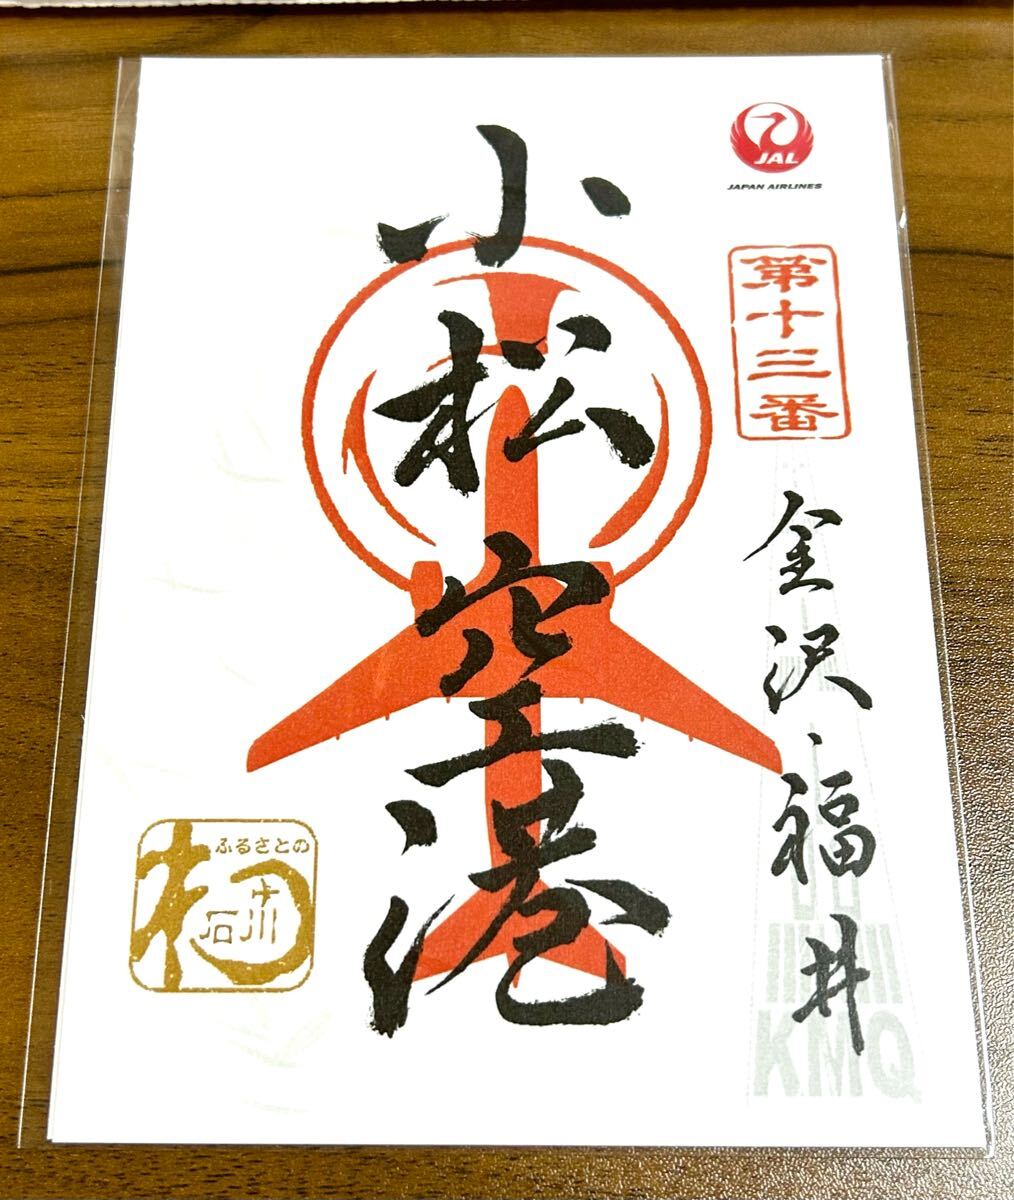 JAL
JAPAN AIRLINES
第十三番
金沢・福井
KMQ
小松空港
ふるさとの
石川